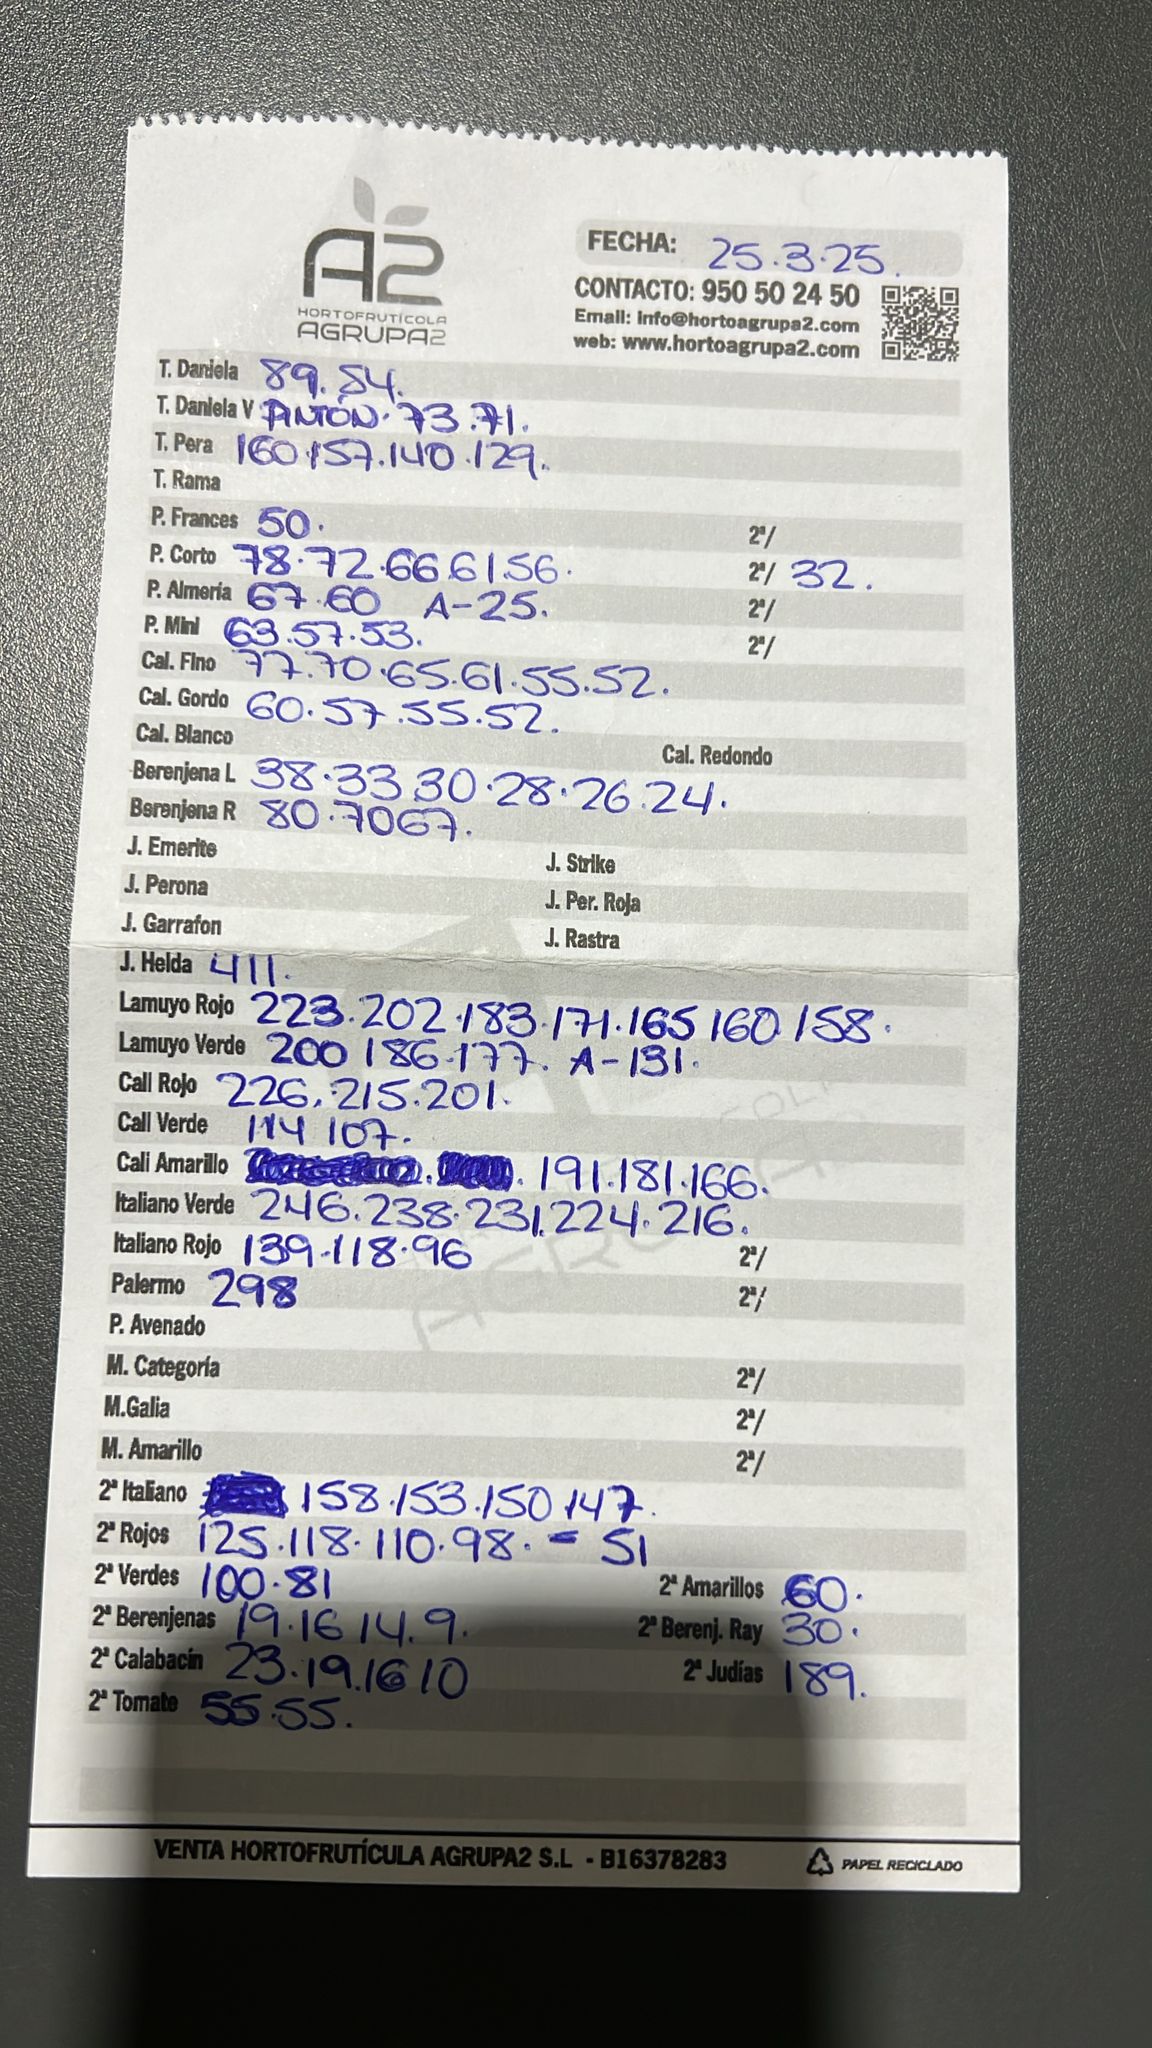 A2
HORTOFRUTÍCOLA
AGRUPA2
FECHA: 25.3.25.
CONTACTO: 950 50 24 50
Email: info@hortoagrupa2.com
web: www.hortoagrupa2.com
T. Daniela 89.54.
T. Daniela V PINTÓN.73.71.
T. Pera 160.157.140.129.
T. Rama
P. Frances 50. 2ª/
P. Corto 78.72.66.61.56. 2ª/ 32.
P. Almería 67.60 A-25. 2ª/
P. Mini 63.57.53. 2ª/
Cal. Fino 77.70.65.61.55.52.
Cal. Gordo 60.57.55.52.
Cal. Blanco Cal. Redondo
Berenjena L 38.33.30.28.26.24.
Berenjena R 80.70 67.
J. Emerite J. Strike
J. Perona J. Per. Roja
J. Garrafon J. Rastra
J. Helda 411.
Lamuyo Rojo 223.202.183.171.165 160 158.
Lamuyo Verde 200 186.177. A-131.
Cali Rojo 226.215.201.
Cali Verde 114 107.
Cali Amarillo 191.181.166.
Italiano Verde 246.238.231.224.216.
Italiano Rojo 139.118.96 2ª/
Palermo 298 2ª/
P. Avenado
M. Categoría 2ª/
M.Galia 2ª/
M. Amarillo 2ª/
2ª Italiano 158.153.150 147.
2ª Rojos 125.118.110.98. - 51
2ª Verdes 100.81 2ª Amarillos 60.
2ª Berenjenas 19.16 14.9. 2ª Berenj. Ray 30.
2ª Calabacín 23.19.16 10 2ª Judías 189.
2ª Tomate 55.55.
VENTA HORTOFRUTÍCULA AGRUPA2 S.L - B16378283 PAPEL RECICLADO